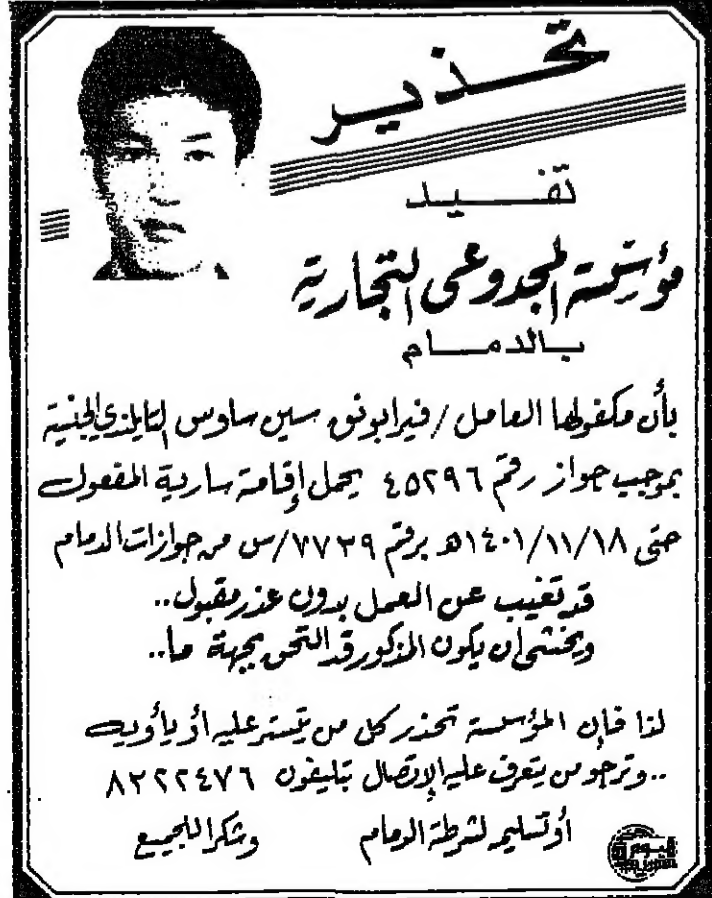 تحذير
تفيد
مؤسسة المجدوعي التجارية
بالدمام
بأن مكفولها العامل / فيرابونق سين ساوس التايلندي الجنية
بموجب جواز رقم ٤٥٢٩٦ يحمل إقامة سارية المفعول
حتى ١٤٠١/١١/١٨هـ برقم ٧٧٣٩/س من جوازات الدمام
قد تغيب عن العمل بدون عذر مقبول..
ويخشى ان يكون المذكور قد التحق بجهة ما..
لذا فإن المؤسسة تحذر كل من يتستر عليه أو يأويه
..وترجو من يتعرف عليه الإتصال بتليفون ٨٣٢٢٤٧٦
أو تسليمه لشرطة الدمام وشكرا للجميع
اليوم